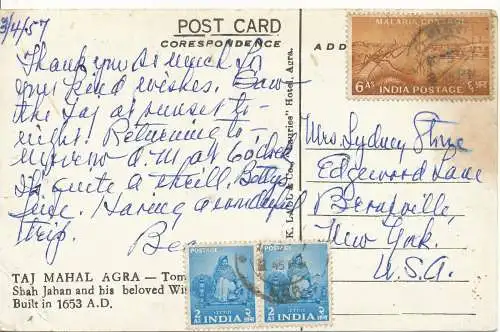 3/4/57
POST CARD
CORESPONDENCE
ADD
Thank you so much for
your kind wishes. Saw
the Taj at sunset to-
night. Returning to-
morrow a.m. at 6 o'clock
It's quite a thrill,
Having a wonderful
trip.
TAJ MAHAL AGRA — Tom
Shah Jahan and his beloved Wi
Built in 1653 A.D.
Hotel, Agra.
MALARIA CONTROL
6 AS INDIA POSTAGE
Mrs. Sydney
Edgewood Lane
New York.
U.S.A.
POSTAGE
POSTAGE
2 AS
INDIA
2 AS
INDIA